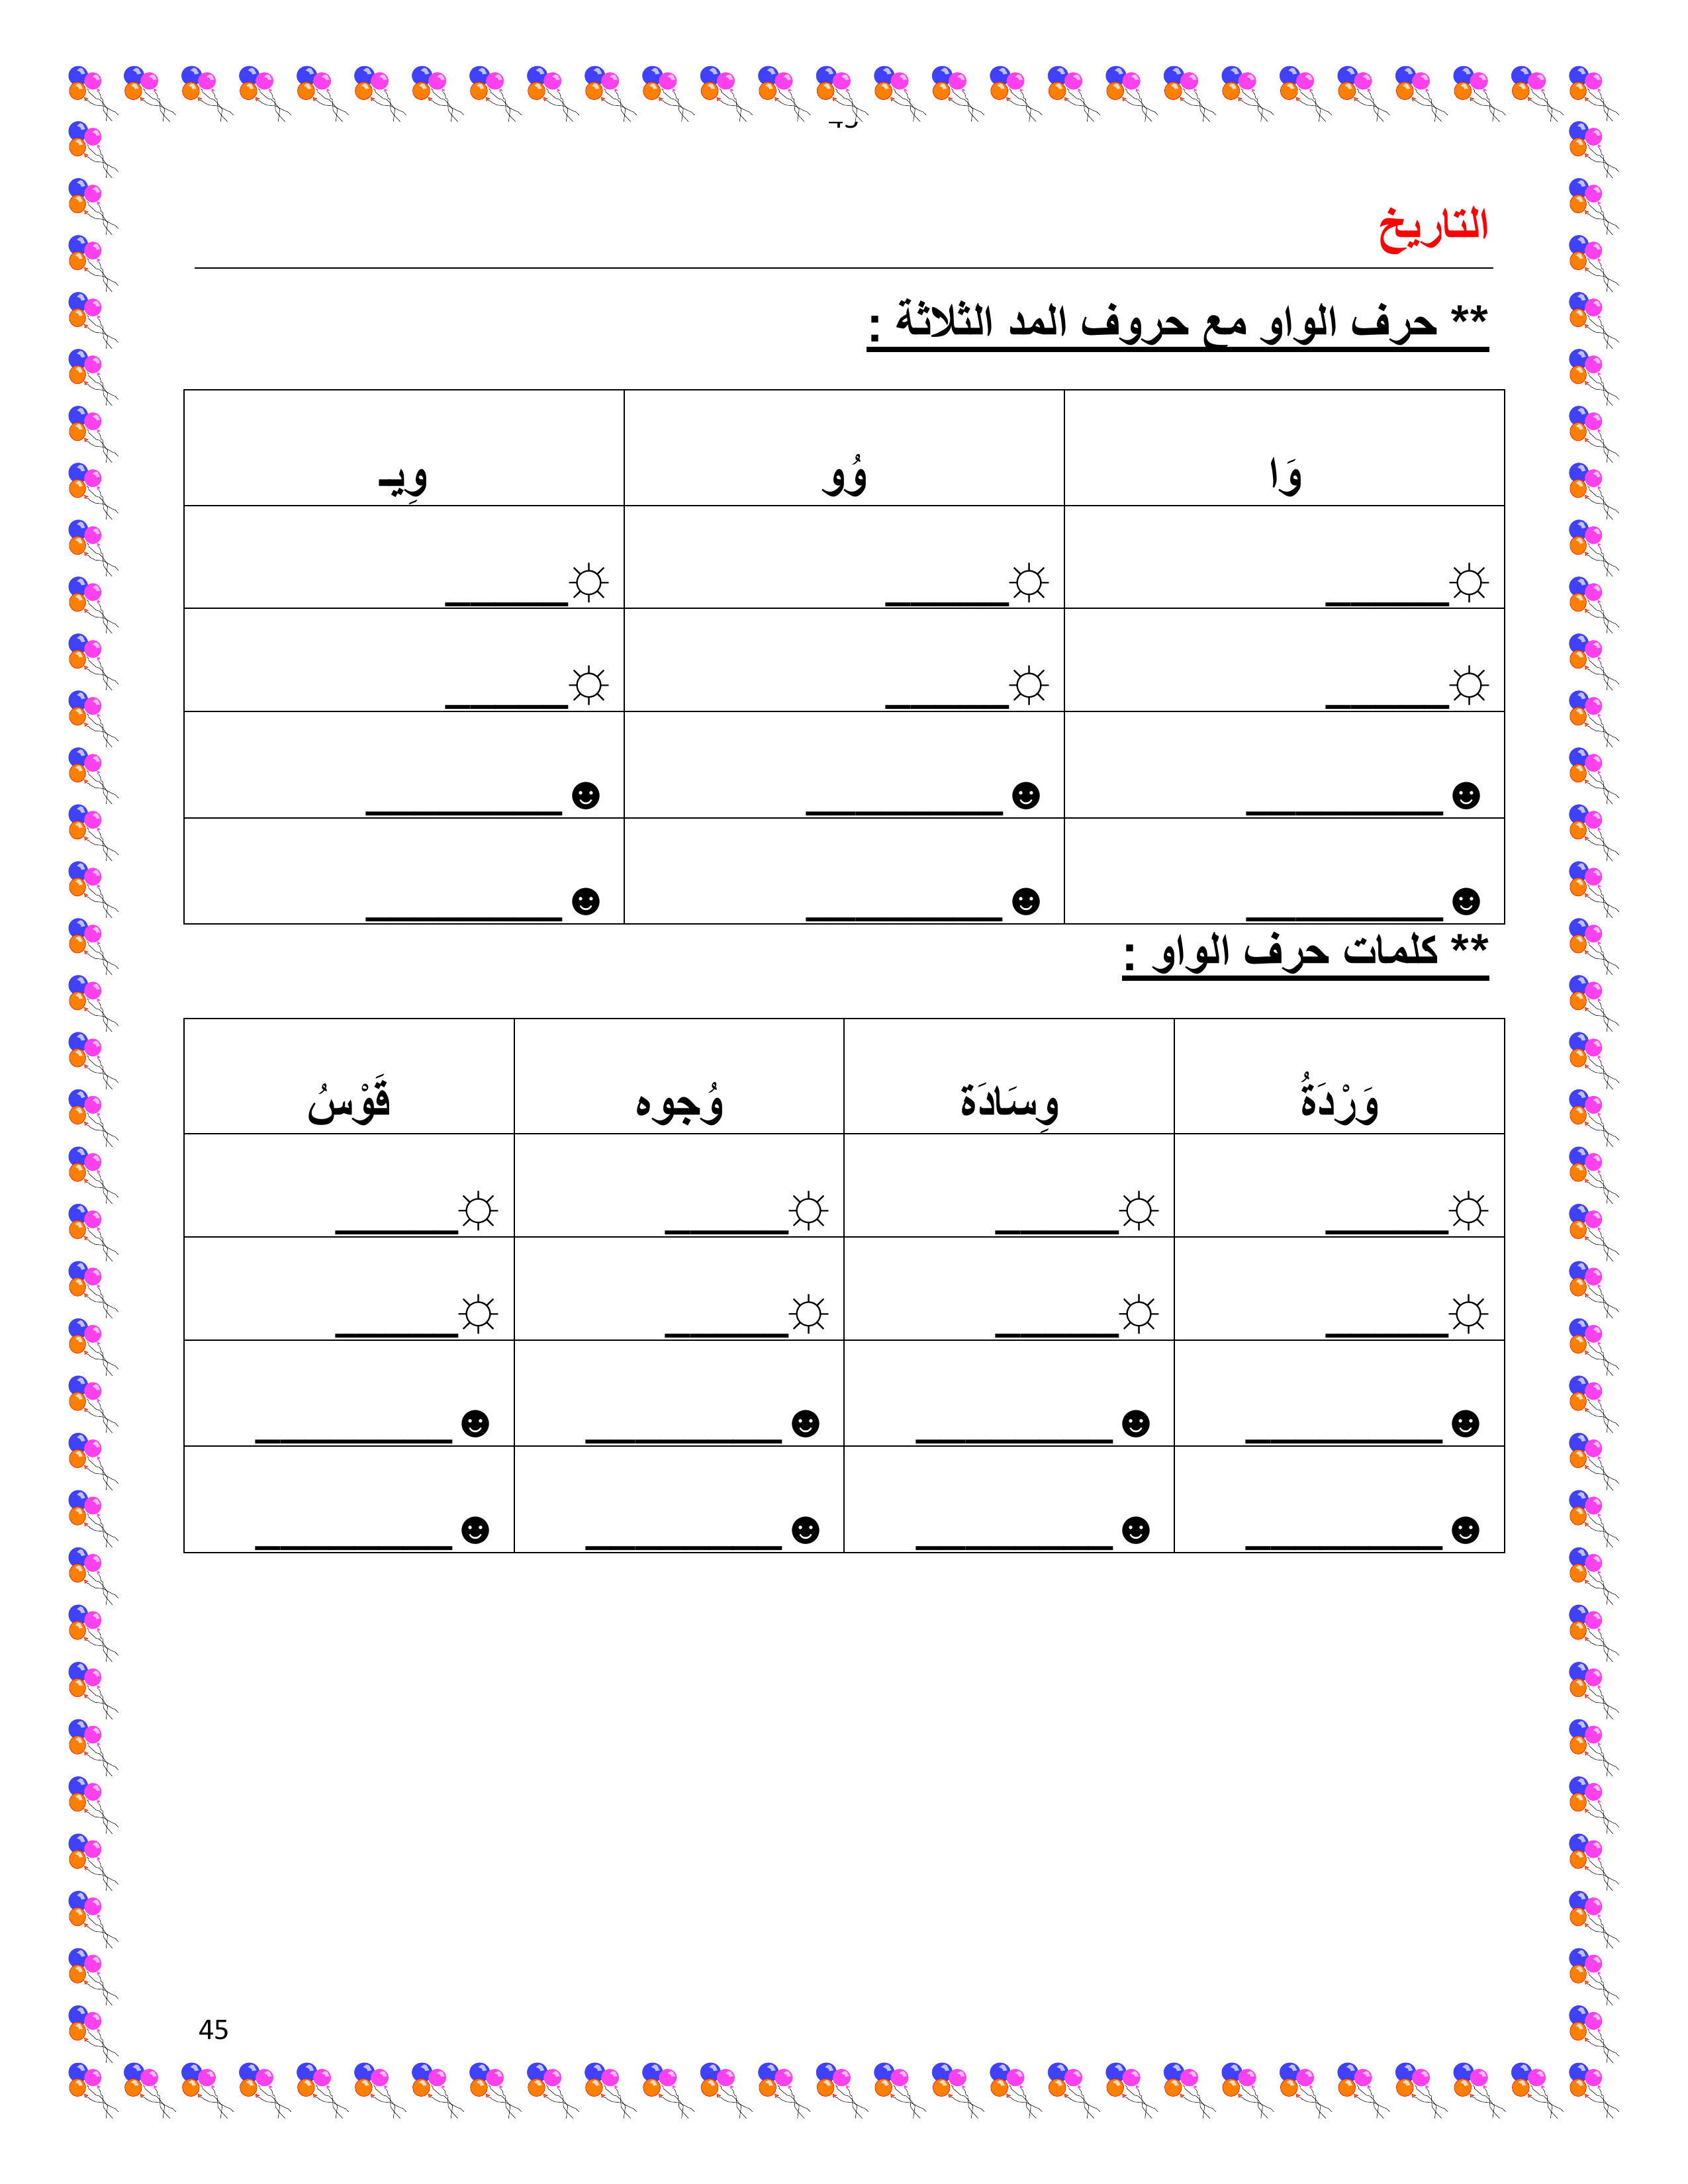 التاريخ
** حرف الواو مع حروف المد الثلاثة :
وَا وُو وِيـ
☼_____ ☼_____ ☼_____
☼_____ ☼_____ ☼_____
☻________ ☻________ ☻________
☻________ ☻________ ☻________
** كلمات حرف الواو :
وَرْدَةُ وِسَادَة وُجوه قَوْسُ
☼_____ ☼_____ ☼_____ ☼_____
☼_____ ☼_____ ☼_____ ☼_____
☻________ ☻________ ☻________ ☻________
☻________ ☻________ ☻________ ☻________
45